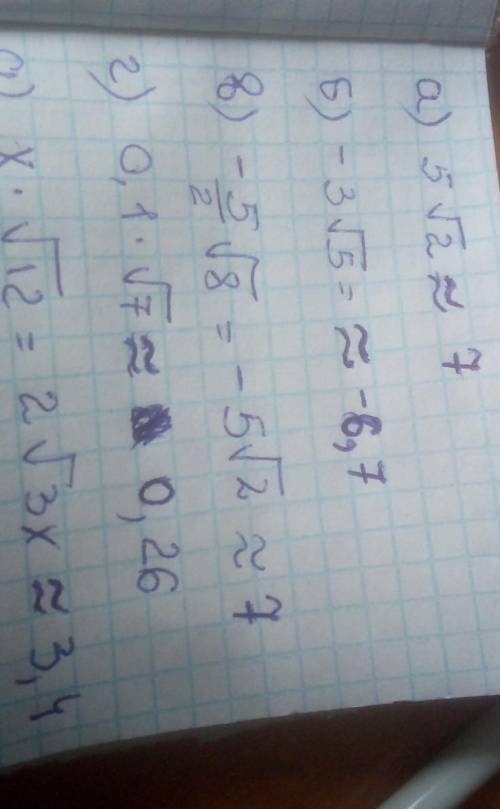 а) 5√2 ≈ 7
б) -3√5 = ≈ -6,7
в) -5/2√8 = -5√2 ≈ 7
г) 0,1·√7 ≈ 0,26
д) x·√12 = 2√3x ≈ 3,4